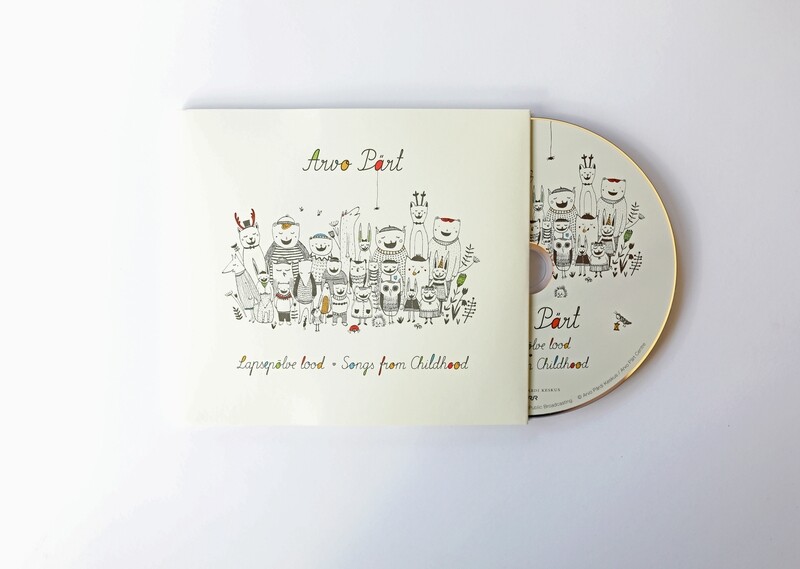 Arvo Pärt
Lapsepõlve lood • Songs from Childhood
Pärt
lve lood
m Childhood
Public Broadcasting
© Arvo Pärdi Keskus / Arvo Pärt Centre